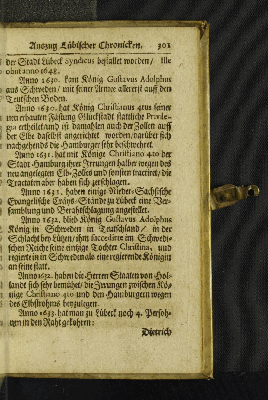 Auszug Lübischer Chronicken. 301
der Stadt Lübeck Syndicus bestallet worden / Ille
obiit anno 1648.
Anno 1630. kam König Gustavus Adolphus
aus Schweden / mit seiner Armee allererst auf den
Teutschen Boden.
Anno 1630. hat König Christianus 4tus seiner
neu erbauten Fästung Glückstadt stattliche Privile-
gia ertheilet und ist damahlen auch der Zollen auff
der Elbe daselbst angerichtet worden, darüber sich
nachgehends die Hamburger sehr beschwehret.
Anno 1631. hat mit Könige Christiano 4to der
Stadt Hamburg ihrer Irrungen halber wegen des
neu angelegten Elb-Zolles und sonsten tractiret / die
Tractaten aber haben sich zerschlagen.
Anno 1631. haben einige Nieder-Sächsische
Evangelische Cräys-Stände zu Lübeck eine Ver-
samblung und Berahtschlagung angestellet.
Anno 1632. blieb König Gustavus Adolphus
König in Schweden in Teutschland / in der
Schlacht bey Lützen / ihm succedirte im Schwedi-
schen Reiche seine eintzige Tochter Christina, und
regierte in Schweden als eine regierende Königin
an seine statt.
Anno 1632. haben die Herren Staaten von Hol-
landt sich sehr bemühet / die Irrungen zwischen Kö-
nige Christiano 4to und den Hamburgern wegen
des Elbstrohms beyzulegen.
Anno 1633. hat man zu Lübeck noch 4. Persoh-
nen in den Raht gekohren:
Dietrich